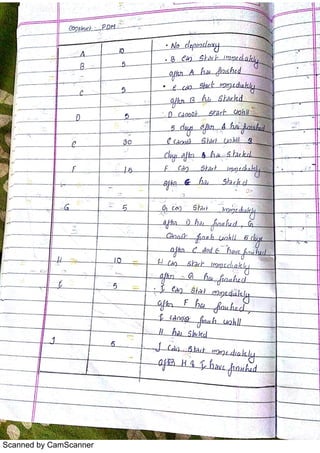 Construct PDM
A 10 • No dependency
B 5 • B can start immediately
after A has finished
C 5 • C can start immediately
after B has started
D 5 D cannot start until
5 days after has finished
30 cannot start until
days after has started
F 15 F can start immediately
after has started
G 5 G can start immediately
after D has finished, G
cannot finish until 5 days
after C and E have finished
H 10 H can start immediately
after G has finished
I 5 • I can start immediately
after F has finished,
I cannot finish until
H has started
J 5 J can start immediately
after H & I have finished
Scanned by CamScanner